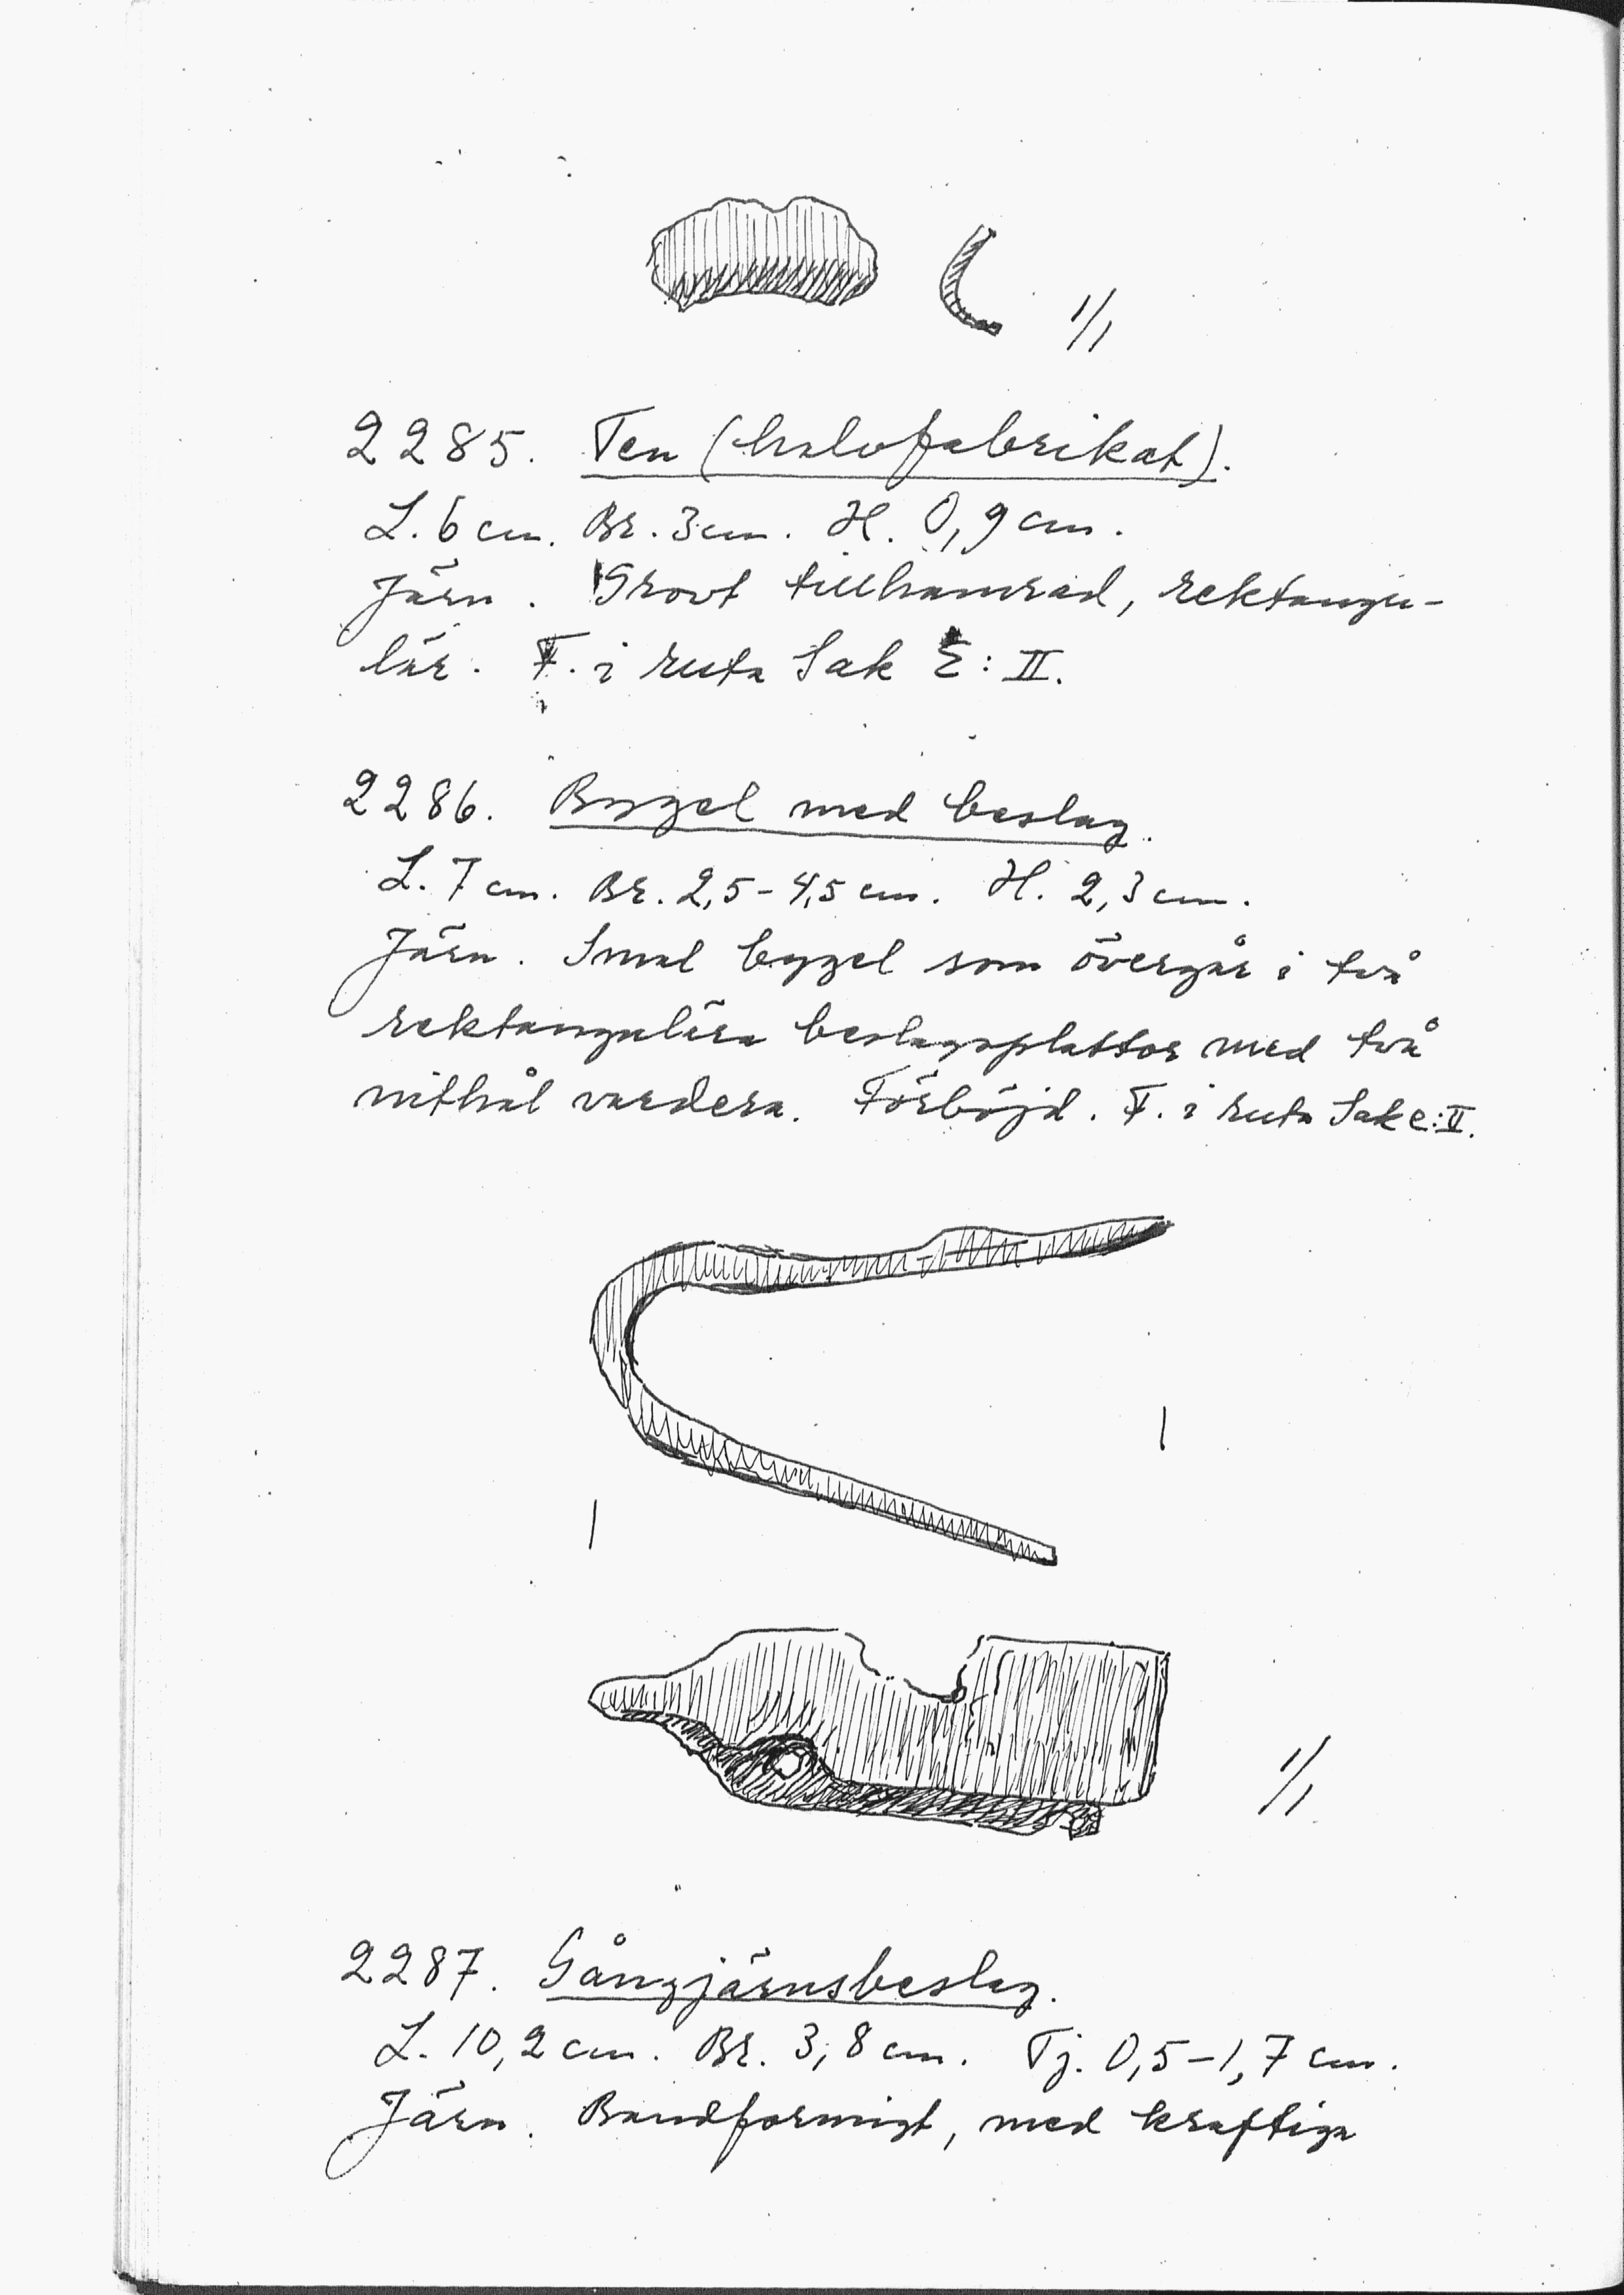 1/1
2285. Ten (halvfabrikat).
L. 6 cm. Br. 3 cm. H. 0,9 cm.
Järn. Grovt tillhamrad, rektangu-
lär. F. i ruta Sak E: II.
2286. Bygel med beslag.
L. 7 cm. Br. 2,5-4,5 cm. H. 2,3 cm.
Järn. Smal bygel som övergår i två
rektangulära beslagsplattor med två
nithål vardera. Förböjd. F. i ruta Sak e: II.
1/1
2287. Gångjärnsbeslag.
L. 10,2 cm. Br. 3,8 cm. Tj. 0,5-1,7 cm.
Järn. Bandformigt, med kraftiga